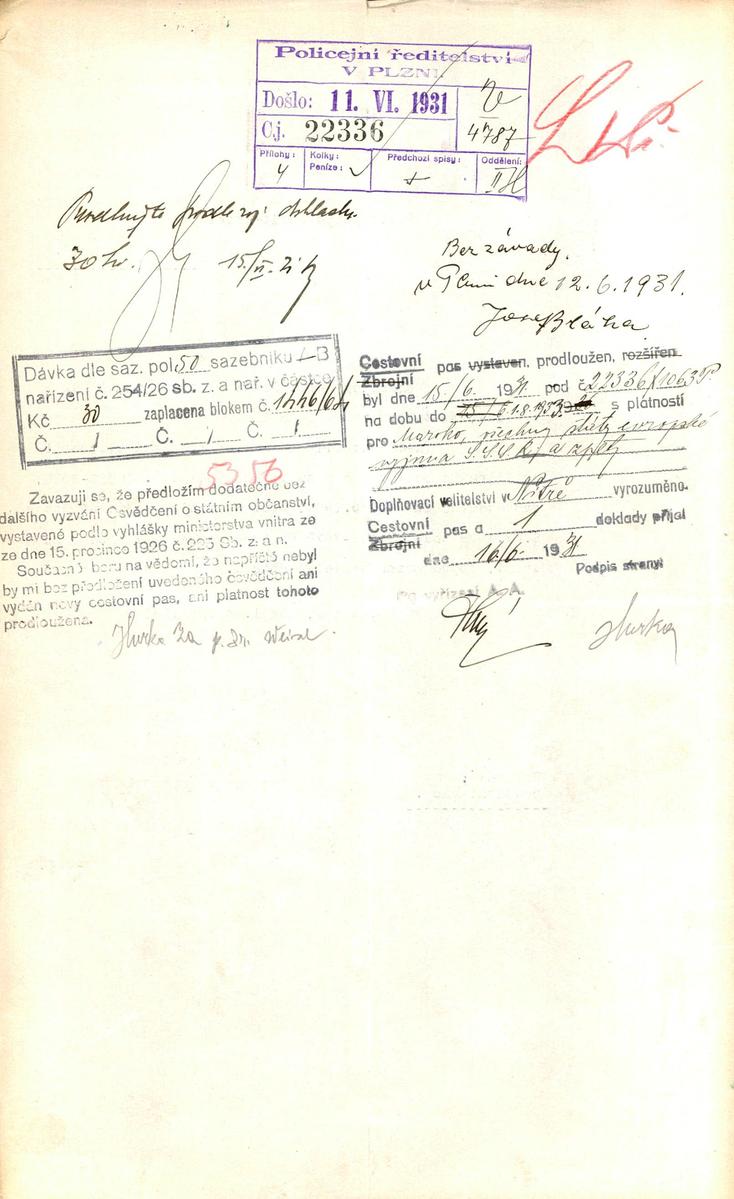 Policejní ředitelství
V PLZNI.
Došlo: 11. VI. 1931
Čj. 22336
4787
Přílohy: 4
Kolky:
Peníze:
Předchozí spisy: +
Oddělení: II
Prodlužte podle
30 Kč 15/VI. 31
Bez závady.
v Plzni dne 12.6.1931.
Josef Bláha
Dávka dle saz. pol. 50 sazebníku B
nařízení č. 254/26 sb. z. a nař. v částce
Kč 30 zaplacena blokem č. 1446/64
Č. / Č. / Č. /
5356
Zavazuji se, že předložím dodatečně bez
dalšího vyzvání Osvědčení o státním občanství,
vystavené podlo vyhlášky ministerstva vnitra ze
ze dne 15. prosince 1926 č. 225 Sb. z. a n.
Současně beru na vědomí, že napříště nebyl
by mi bez předložení uvedeného osvědčení ani
vydán nový cestovní pas, ani platnost tohoto
prodloužena.
Hurka za p. Dr.
Cestovní pas vystaven, prodloužen, rozšířen
Zbrojní
byl dne 15/6. 1931 pod č. 22336/1063 P.
na dobu do s platností
pro Maroko, všechny státy evropské
vyjma S.S.S.R. a zpět
Doplňovací velitelství v Nitře vyrozuměno.
Cestovní pas a 1 doklady přijal
Zbrojní
dne 16/6. 1931
Podpis strany:
Po vyřízení A. A.
Hurka